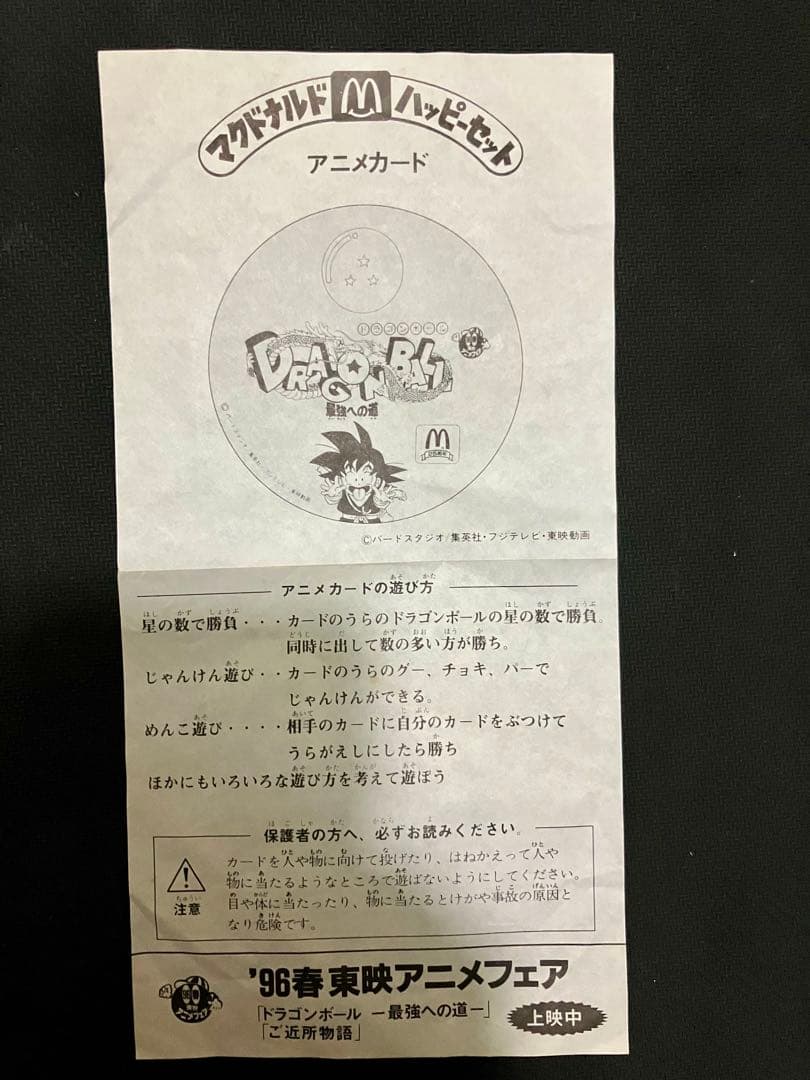 マクドナルド M ハッピーセット
アニメカード
ドラゴンボール
DRAGON BALL
最強への道
©バードスタジオ/集英社・フジテレビ・東映動画
アニメカードの遊び方
星の数で勝負・・・カードのうらのドラゴンボールの星の数で勝負。
同時に出して数の多い方が勝ち。
じゃんけん遊び・・カードのうらのグー、チョキ、パーで
じゃんけんができる。
めんこ遊び・・・・相手のカードに自分のカードをぶつけて
うらがえしにしたら勝ち
ほかにもいろいろな遊び方を考えて遊ぼう
保護者の方へ、必ずお読みください。
カードを人や物に向けて投げたり、はねかえって人や
物に当たるようなところで遊ばないようにしてください。
目や体に当たったり、物に当たるとけがや事故の原因と
なり危険です。
注意
'96春 東映アニメフェア
「ドラゴンボール ー最強への道ー」
「ご近所物語」
上映中